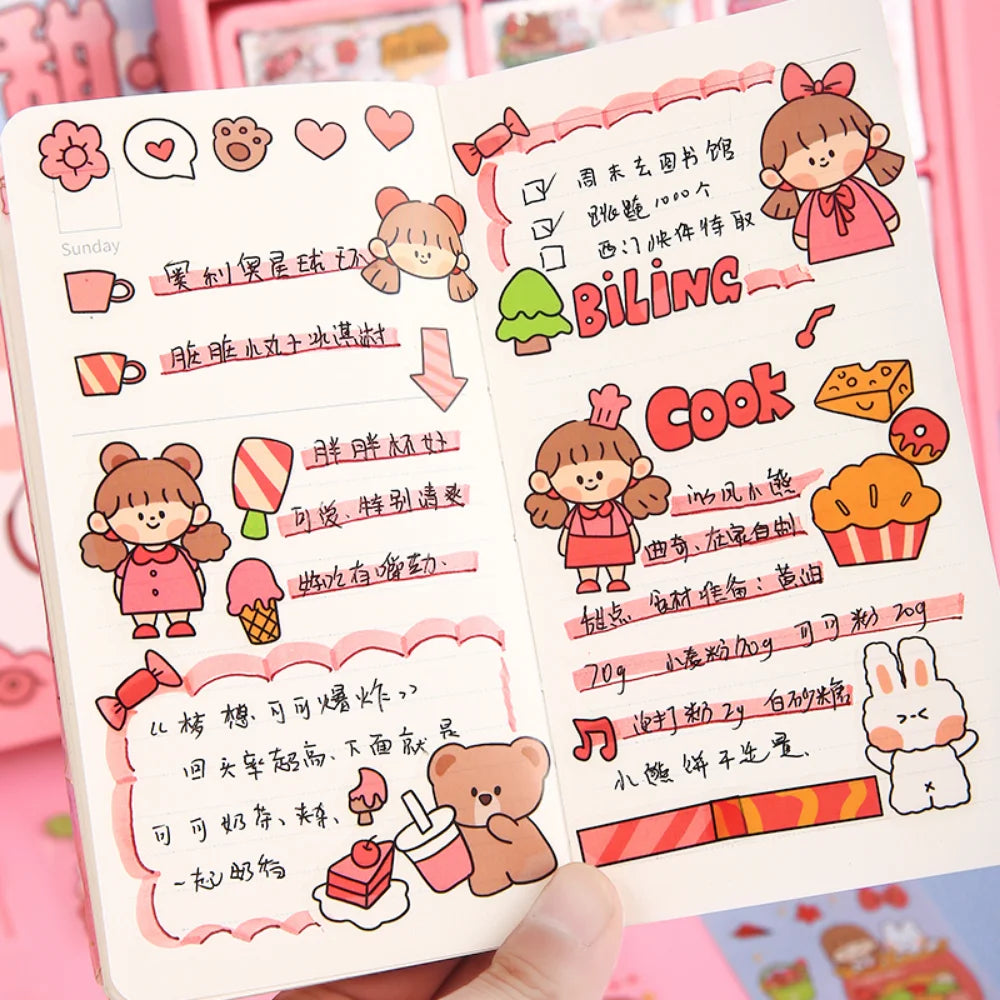 甜
Sunday
奥利奥星球切
脏脏小丸子冰淇淋
胖胖杯好
可爱、特别清爽
好吃有嚼劲、
“梦想可可爆炸”
回头率超高、下面就是
可可奶茶、
一起
周末去图书馆
跳绳1000个
西门快件待取
BiLiNG
COOK
小熊
曲奇、在家自制
甜点 食材准备：黄油
70g 小麦粉90g 可可粉20g
泡打粉2g 白砂糖
小熊饼干适量、